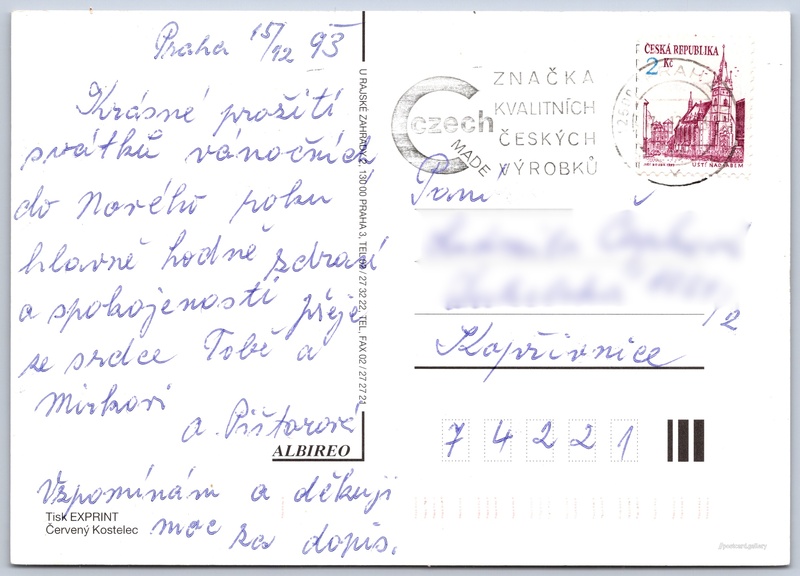 Praha 15/12 93
Krásné prožití
svátků vánočních
do Nového roku
hlavně hodně zdraví
a spokojenosti přeje
ze srdce Tobě a
Mirkovi
a. Pištorová
Vzpomínám a děkuji
moc za dopis.
Tisk EXPRINT
Červený Kostelec
U RAJSKÉ ZAHRADY 2, 130 00 PRAHA 3, TEL. 02 / 27 32 22, TEL. FAX 02 / 27 27 21
ALBIREO
Czech
MADE
ZNAČKA
KVALITNÍCH
ČESKÝCH
VÝROBKŮ
ČESKÁ REPUBLIKA
2 Kč
ÚSTÍ NAD LABEM
PRAHA
Paní
/2
Kopřivnice
74221